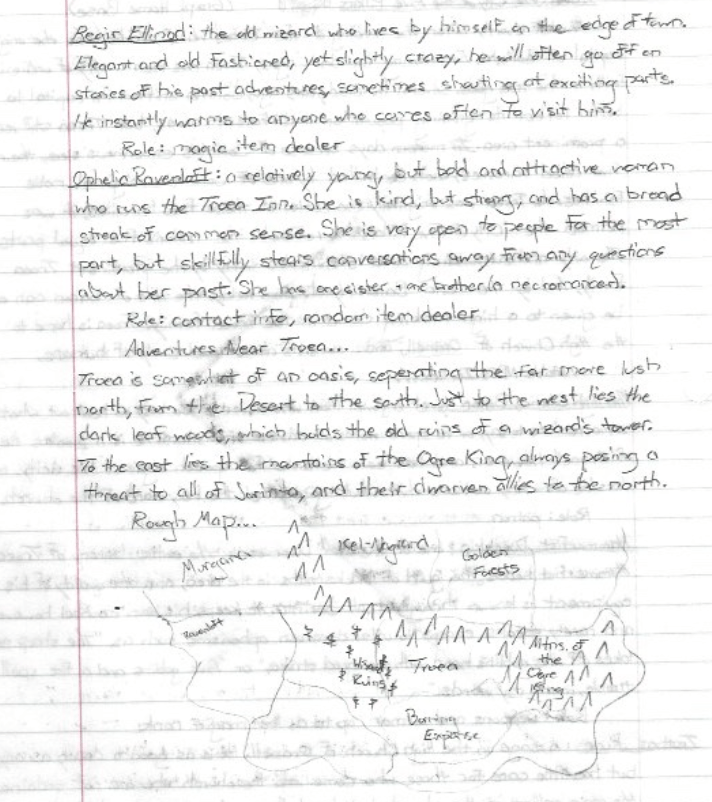 Regis Ellinod: the old wizard who lives by himself on the edge of town.
Elegant and old fashioned, yet slightly crazy, he will often go off on
stories of his past adventures, sometimes shouting at exciting parts.
He instantly warms to anyone who comes often to visit him.
Role: magic item dealer
Ophelia Ravenloft: a relatively young, but bold and attractive woman
who runs the Troea Inn. She is kind, but strong, and has a broad
streak of common sense. She is very open to people for the most
part, but skillfully stears conversations away from any questions
about her past. She has one sister + one brother (a necromancer).
Role: contact info, random item dealer
Adventures Near Troea...
Troea is somewhat of an oasis, seperating the far more lush
north, from the Desert to the south. Just to the west lies the
dark leaf woods, which holds the old ruins of a wizard's tower.
To the east lies the mountains of the Ogre King, always posing a
threat to all of and their dwarven allies to the north.
Rough Map...
Golden
Forests
Ravenloft
Wizard
Ruins
Troea
Mtns. of
the
Ogre
King
Burning
Expanse